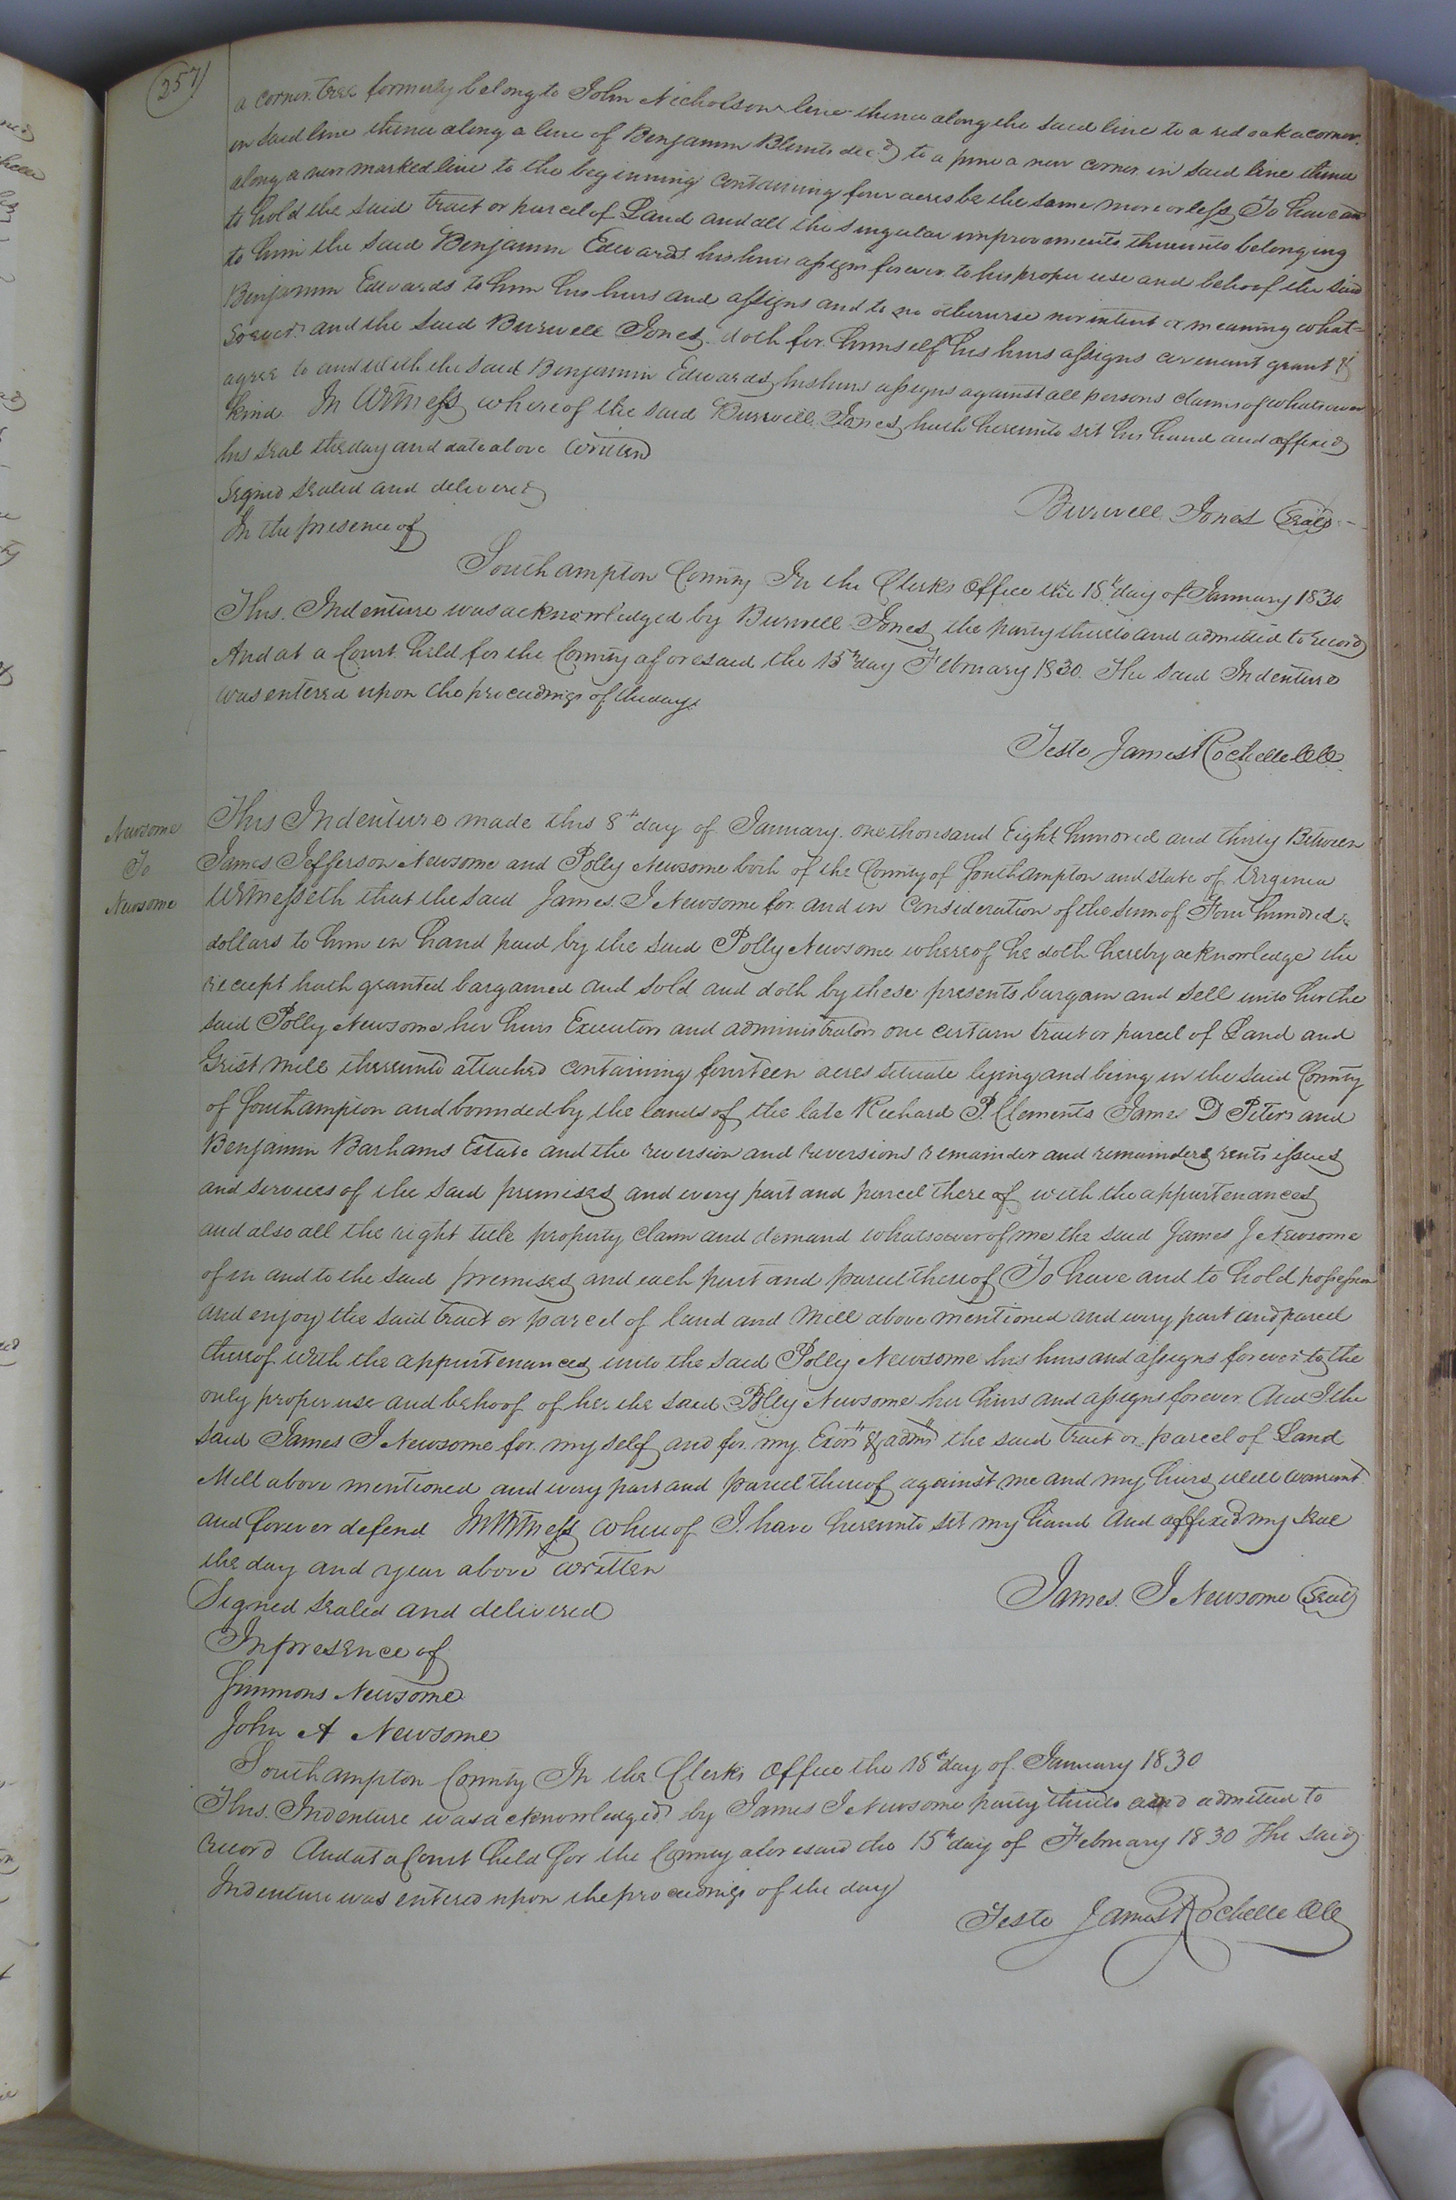 257
a corner tree formerly belong to John Nicholson line thence along the said line to a red oak a corner
in said line thence along a line of Benjamin Blunts decd to a pine a new corner in said line thence
along a new marked line to the beginning containing four acres be the same more or less To have and
to hold the said tract or parcel of Land and all the singular improvements thereunto belonging
to him the said Benjamin Edwards his heirs assigns forever to his proper use and behoof the said
Benjamin Edwards to him his heirs and assigns and to no otherwise nor intent or meaning what=
soever and the said Burwell Jones doth for himself his heirs assigns covenant grant &
agree to and with the said Benjamin Edwards his heirs assigns against all persons claims of whatsoever
kind In Witness whereof the said Burwell Jones hath hereunto set his hand and affixed
his seal the day and date above written
Signed sealed and delivered
Burwell Jones Seal
In the presence of
Southampton County In the Clerks Office the 18th day of January 1830
This Indenture was acknowledged by Burwell Jones the party thereto and admitted to record
And at a Court held for the County aforesaid the 15th day February 1830 The said Indenture
was entered upon the proceedings of the day
Teste James Rochelle CC
Newsome
To
Newsome
This Indenture made this 8th day of January one thousand Eight hundred and thirty Between
James Jefferson Newsome and Polly Newsome both of the County of Southampton and state of Virginia
Witnesseth that the said James J Newsome for and in Consideration of the sum of Four hundred
dollars to him in hand paid by the said Polly Newsome whereof he doth hereby acknowledge the
receipt hath granted bargained and sold and doth by these presents bargain and sell unto her the
said Polly Newsome her heirs Executors and administrators one certain tract or parcel of Land and
Grist Mill thereunto attached containing fourteen acres situate lying and being in the said County
of Southampton and bounded by the lands of the late Richard P. Clements James D Peters and
Benjamin Barhams Estate and the reversion and reversions remainder and remainders rents issues
and services of the said premises and every part and parcel there of with the appurtenances
and also all the right title property claim and demand whatsoever of me the said James J Newsome
of in and to the said premises and each part and parcel thereof To have and to hold possession
and enjoy the said tract or parcel of land and Mill above mentioned and every part and parcel
thereof with the appurtenances unto the said Polly Newsome his heirs and assigns forever to the
only proper use and behoof of her the said Polly Newsome her heirs and assigns forever And I the
said James J Newsome for my self and for my Exors & admrs the said tract or parcel of Land
Mill above mentioned and every part and parcel thereof against me and my heirs will warrant
and forever defend In Witness whereof I have hereunto set my hand and affixed my seal
the day and year above written
James J Newsome Seal
Signed sealed and delivered
In presence of
Simmons Newsome
John A Newsome
Southampton County In the Clerks Office the 18th day of January 1830
This Indenture was acknowledged by James J Newsome party thereto and admitted to
record And at a Court held for the County aforesaid the 15th day of February 1830 The said
Indenture was entered upon the proceedings of the day
Teste James Rochelle CC